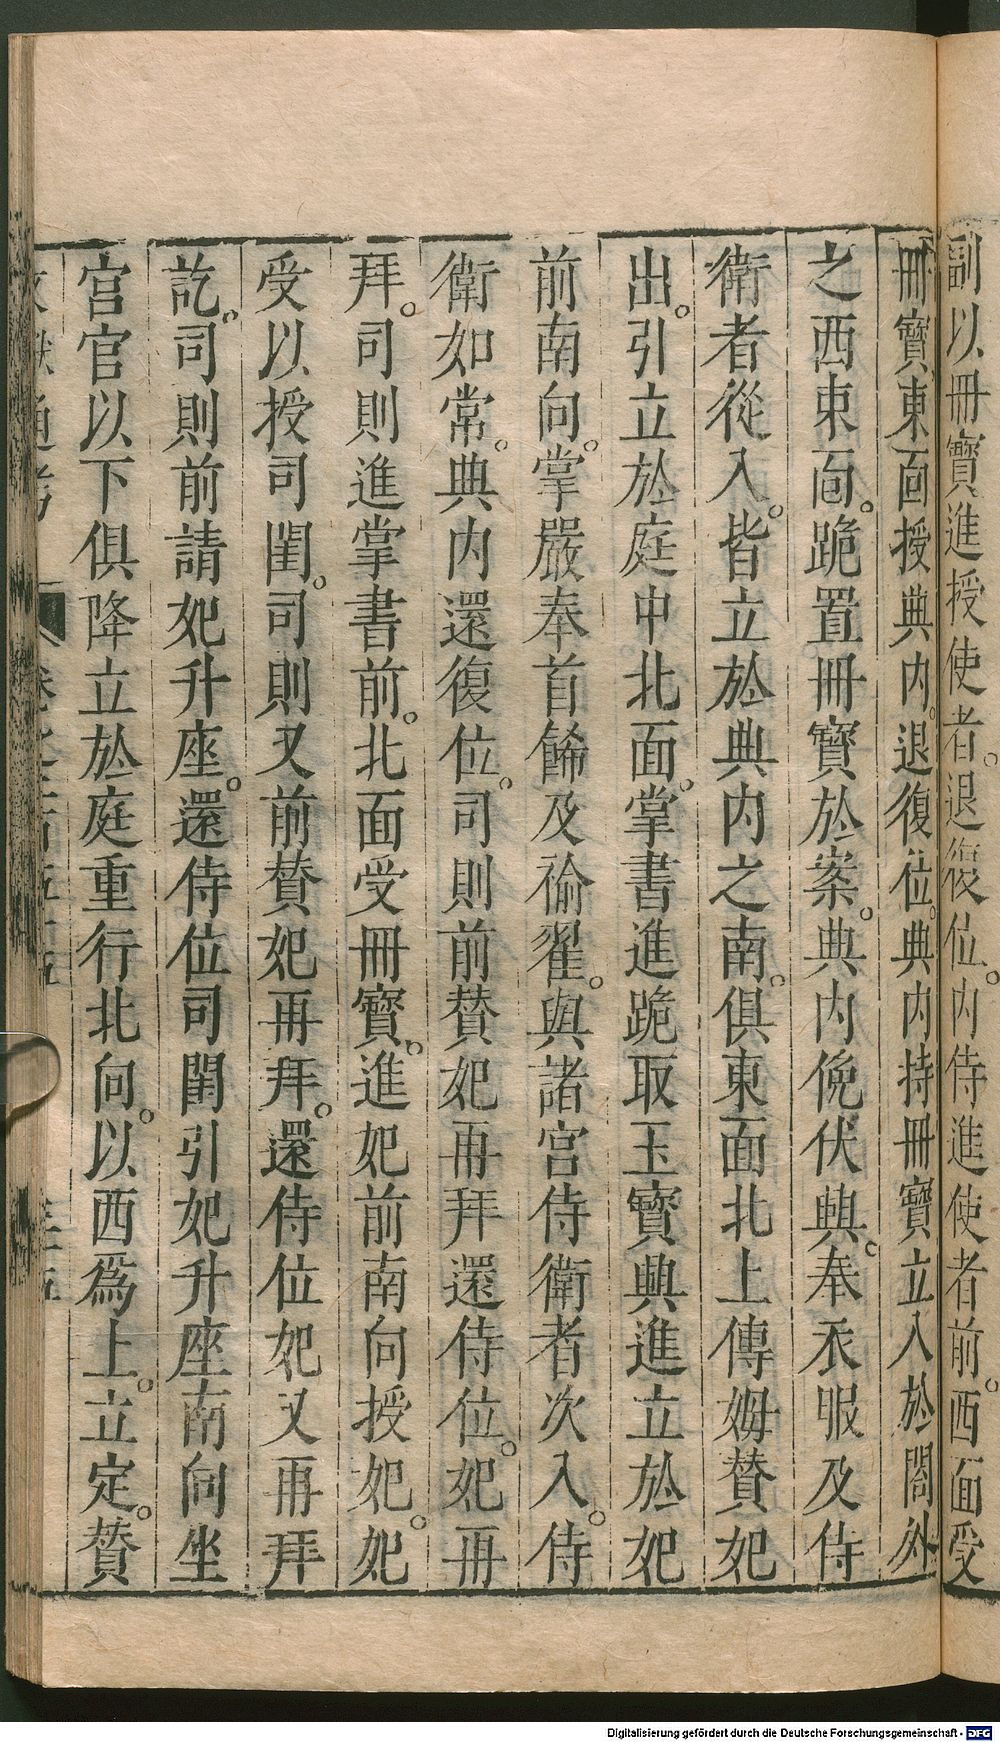 副以冊寳進授使者。退復位。内侍進使者前。西面受
冊寳東面授典内。退復位。典内持冊寳立入於閤外
之西東面。跪置冊寳於案。典内俛伏興。奉衣服及侍
衛者從入。皆立於典内之南。俱東面北上傳姆贊妃
出。引立於庭中北面。掌書進跪取玉寳興進立於妃
前南向。掌嚴奉首餙及褕翟。與諸宮侍衛者次入。侍
衛如常。典内還復位。司則前贊妃再拜還侍位。妃再
拜。司則進掌書前。北面受冊寳。進妃前南向授妃。妃
受以授司閨。司則又前贊妃再拜。還侍位妃又再拜
訖。司則前請妃升座。還侍位司閨引妃升座南向坐
宮官以下俱降立於庭重行北向。以西爲上。立定。贊
通考
Digitalisierung gefördert durch die Deutsche Forschungsgemeinschaft - DFG